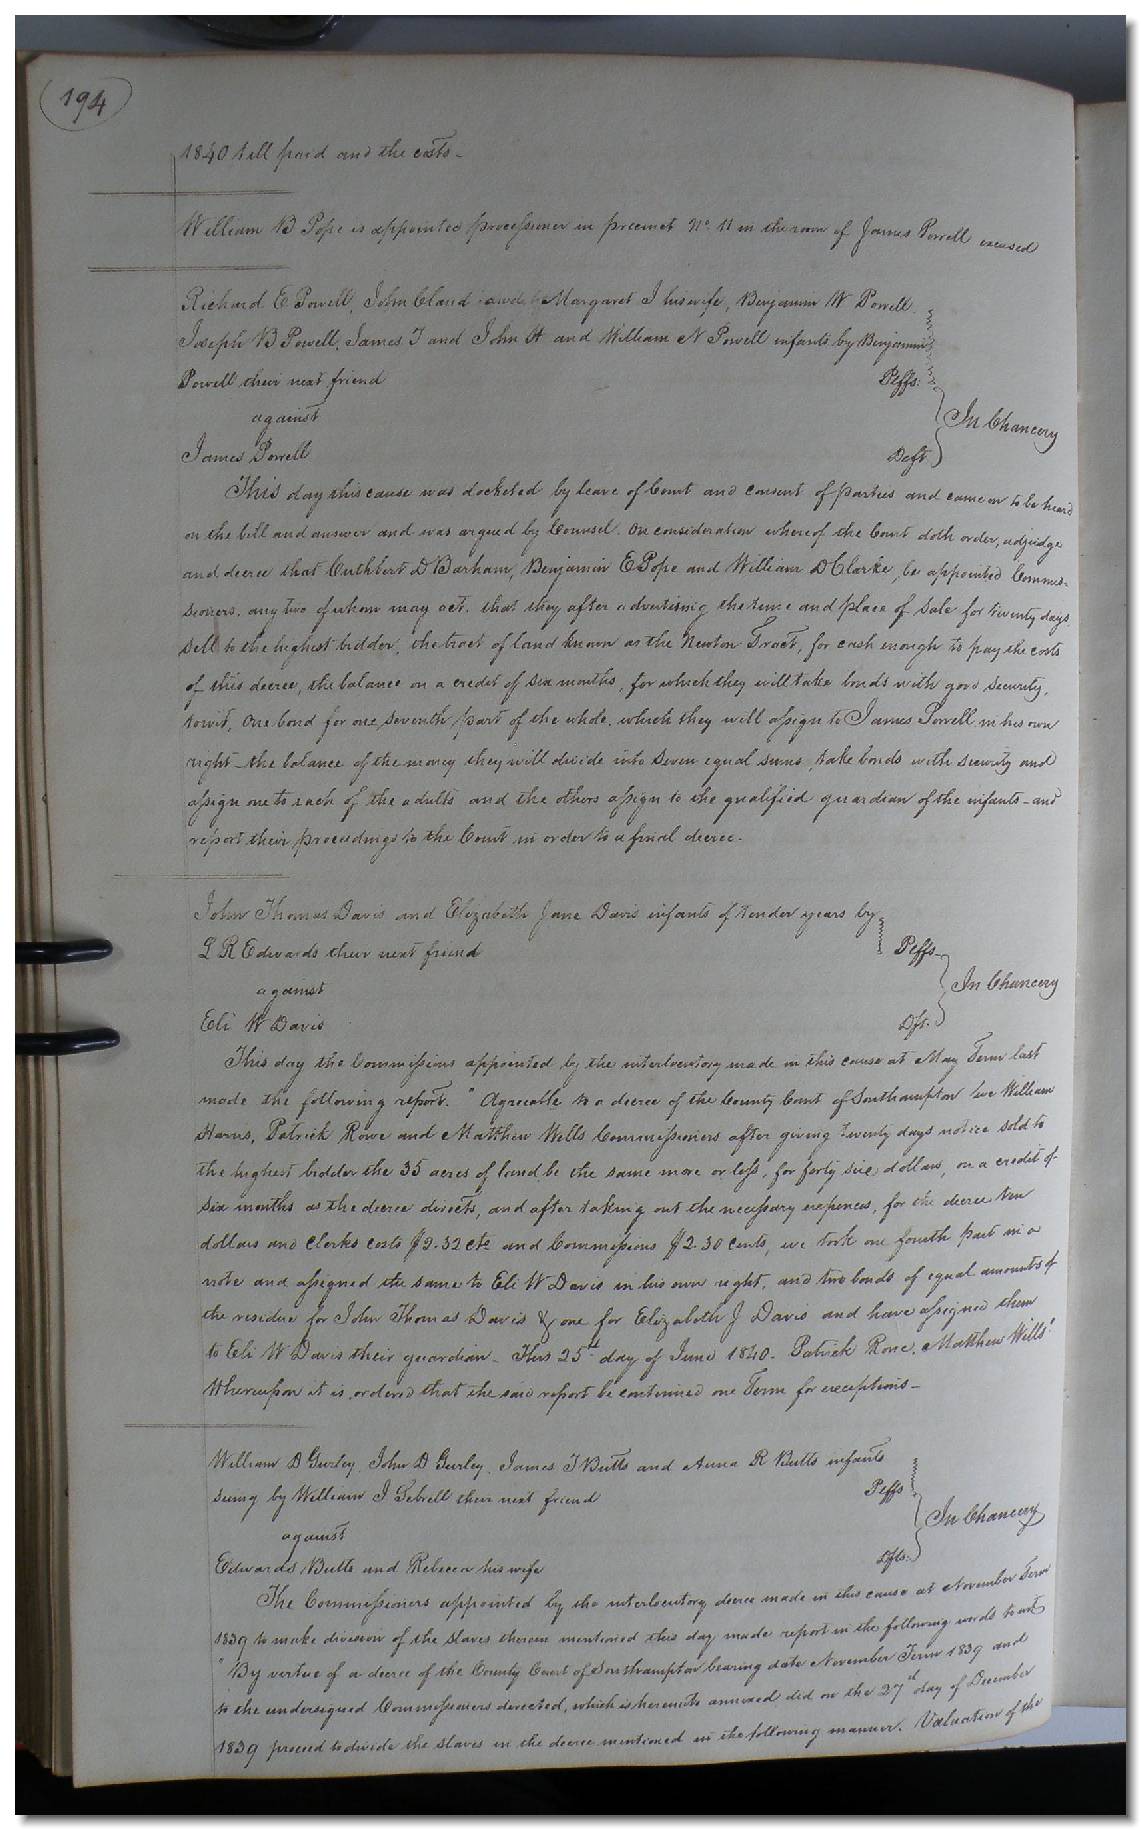 194
1840 till paid and the costs-
William B Pope is appointed processioner in precinct No. 11 in the room of James Powell excused
Richard E Powell, John Claud Margaret J his wife, Benjamin W Powell
Joseph B Powell, James T and John H and William N Powell infants by Benjamin
Powell their next friend Plffs:
against In Chancery
James Powell Deft
This day this cause was docketed by leave of Court and consent of parties and came on to be heard
on the bill and answer and was argued by Counsel. On consideration whereof the Court doth order, adjudge
and decree that Cuthbert D Barham, Benjamin E Pope and William D Clarke, be appointed Commis-
sioners, any two of whom may act, that they after advertising the time and place of sale for twenty days,
sell to the highest bidder, the tract of land known as the Newton Tract, for cash enough to pay the costs
of this decree, the balance on a credit of six months, for which they will take bonds with good security,
towit, one bond for one seventh part of the whole, which they will assign to James Powell in his own
right - the balance of the money they will divide into seven equal sums, take bonds with security and
assign one to each of the adults and the others assign to the qualified guardian of the infants - and
report their proceedings to the Court in order to a final decree.
John Thomas Davis and Elizabeth Jane Davis infants of tender years by
L R Edwards their next friend Plffs
against In Chancery
Eli W Davis Dft.
This day the Commissions appointed by the interlocutory made in this cause at May Term last
made the following report. "Agreeable to a decree of the County Court of Southampton we William
Harris, Patrick Rowe and Matthew Wills Commissioners after giving twenty days notice sold to
the highest bidder the 35 acres of land be the same more or less, for forty six dollars, on a credit of
six months as the decree directs, and after taking out the necessary expences, for the decree ten
dollars and clerks costs $9.32 cts and Commissions $2.30 cents, we took one fourth part in a
note and assigned the same to Eli W Davis in his own right, and two bonds of equal amounts of
the residue for John Thomas Davis & one for Elizabeth J Davis and have assigned them
to Eli W Davis their guardian - This 25th day of June 1840. Patrick Rowe, Matthew Wills"
Whereupon it is ordered that the said report be continued one Term for exceptions-
William D Gurley, John D Gurley, James T Butts and Anna R Butts infants
suing by William J Sebrell their next friend Plffs
against In Chancery
Edwards Butts and Rebecca his wife Dfts.
The Commissioners appointed by the interlocutory decree made in this cause at November Term
1839 to make division of the slaves therein mentioned this day made report in the following words towit
"By virtue of a decree of the County Court of Southampton bearing date November Term 1839 and
to the undersigned Commissioners directed, which is herewith annexed did on the 27th day of December
1839 proceed to divide the slaves in the decree mentioned in the following manner. Valuation of the